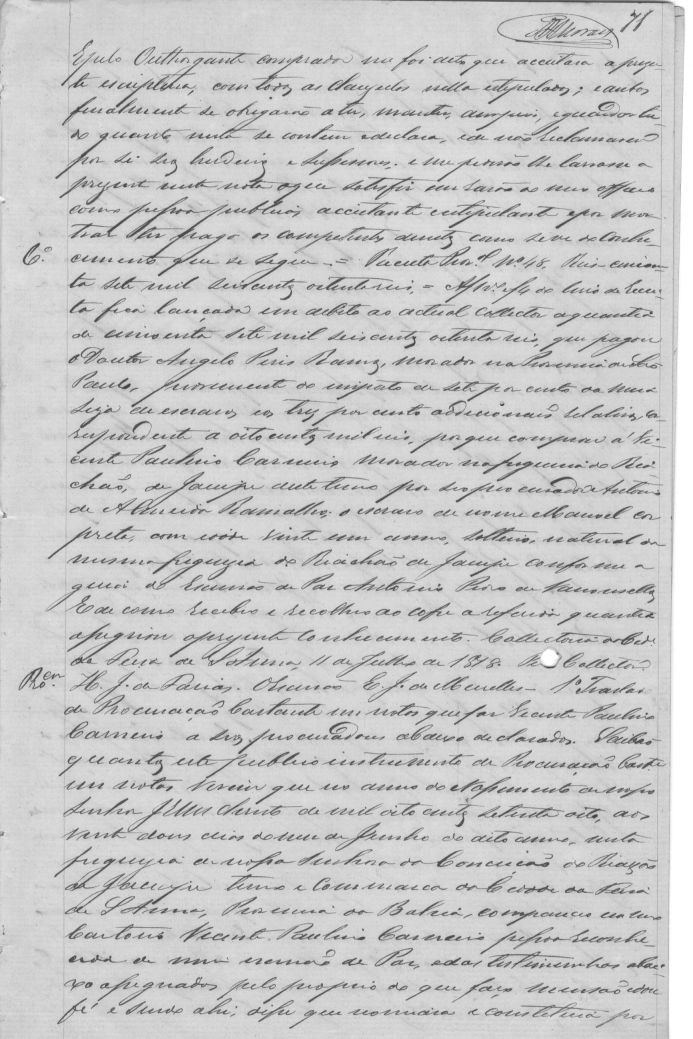 71
E pelo Outhorgante comprador me foi dito que acceitava a presen-
te escriptura, com todas as clausulas nella estipuladas; e ambos
finalmente se obrigarão a ter, manter, e guardar tu-
do quanto nesta se contem e declara, e de não reclamarem
por si seos herdeiros e sucessores. e me pedirão lhe lavrasse a
presente nesta nota a que satisfiz em rasão do meu officio
como pessoa publica acceitante e estipulante e por mos-
trar ter pago os competentes direitos como se ve do conhe-
C.º cimento que se segue. = Nº 48. Reis cincoen-
ta sete mil seiscentos oitenta reis, = Af do livro de Recei-
ta fica lançada em debito ao actual Collector a quantia
de cincoenta sete mil seiscentos oitenta reis, que pagou
o Doutor Angelo Pires Ramos, morador na Provincia de São
Paulo, do imposto de sete por cento da meia
siza de escravos e tres por cento addicionaes relativos, cor-
respondente a oitocentos mil reis, porque comprou a Vi-
cente Paulino Carneiro morador na freguesia do Ria-
chão, de Jacuipe deste termo por seo procurador Antonio
de Almeida Ramalho: o escravo de nome Manoel cor
preta, com idade vinte um annos, solteiro, natural da
mesma freguesia do Riachão de Jacuipe conforme a
guia do Escrivão de Paz Antonio de Vasconcellos
E de como recebeo e recolheo ao cofre a referida quantia
assignou o presente conhecimento. Collectoria da Cida-
de Feira de S. Anna, 11 de Julho de 1878. O Collector
Proc.en H. J. de Farias. O Escrivão E. J. de Meirelles - 1º Traslado
de Procuração bastante em notas que faz Vicente Paulino
Carneiro a seos procuradores abaixo declarados. Saibão
quantos este publico instrumento de Procuração bast.e
em notas virem que no anno do Nascimento de nosso
Senhor Jesus Christo de mil oito centos setenta oito, aos
vinte dous dias do mez de Junho do dito anno, nesta
freguesia de nossa Senhora da Conceição do Riachão
de Jacuipe termo e Commarca da Cidade da Feira
de S. Anna, Provincia da Bahia, compareceo em meo
Cartorio Vicente Paulino Carneiro pessoa reconhe-
cida de mim escrivão de Paz, e das testimunhas abai-
xo assignados pelo proprio do que faço menção e dou
fé e sendo ahi; disse que nomeava e constituia por